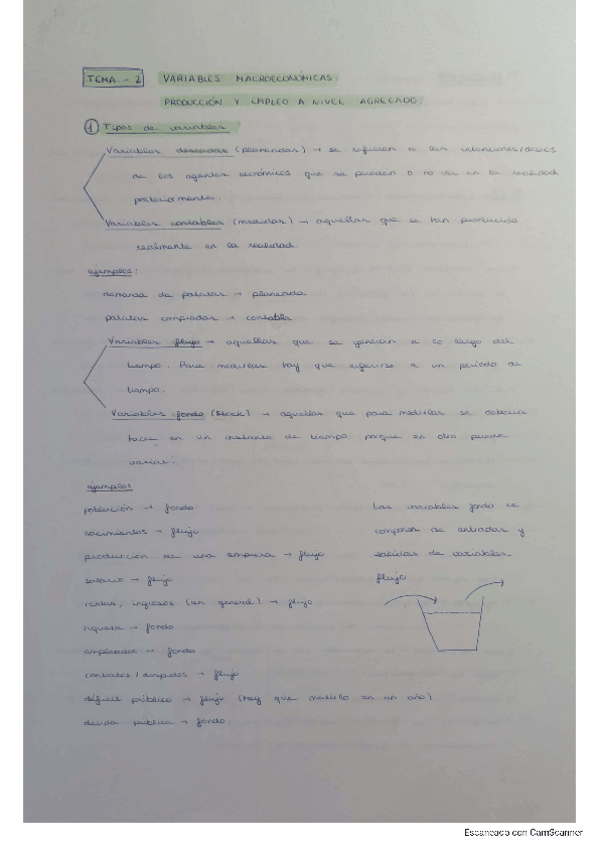 TEMA - 2 VARIABLES MACROECONÓMICAS:
PRODUCCIÓN Y EMPLEO A NIVEL AGREGADO.
1 Tipos de variables
Variables deseadas (planeadas) → se refieren a las intenciones/deseos
de los agentes económicos que se pueden o no ver en la realidad
posteriormente.
Variables contables (medidas) → aquellas que se han producido
realmente en la realidad.
ejemplos:
demanda de patatas → planeada
patatas compradas → contable
Variables flujo → aquellas que se generan a lo largo del
tiempo. Para medirlas hay que referirse a un período de
tiempo.
Variables fondo (stock) → aquellas que para medirlas se debería
hacer en un instante de tiempo porque en otro puede
variar.
ejemplos
población → fondo
nacimientos → flujo
producción de una empresa → flujo
salario → flujo
rentas, ingresos (en general) → flujo
riqueza → fondo
empleados → fondo
contratos/despidos → flujo
déficit público → flujo (hay que medirlo en un año)
deuda pública → fondo.
Las variables fondo se
componen de entradas y
salidas de variables
flujo
Escaneado con CamScanner